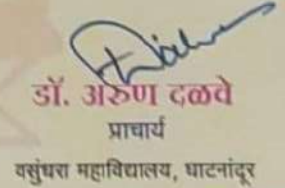 डॉ. अरुण दळवे
प्राचार्य
वसुंधरा महाविद्यालय, घाटनांदूर